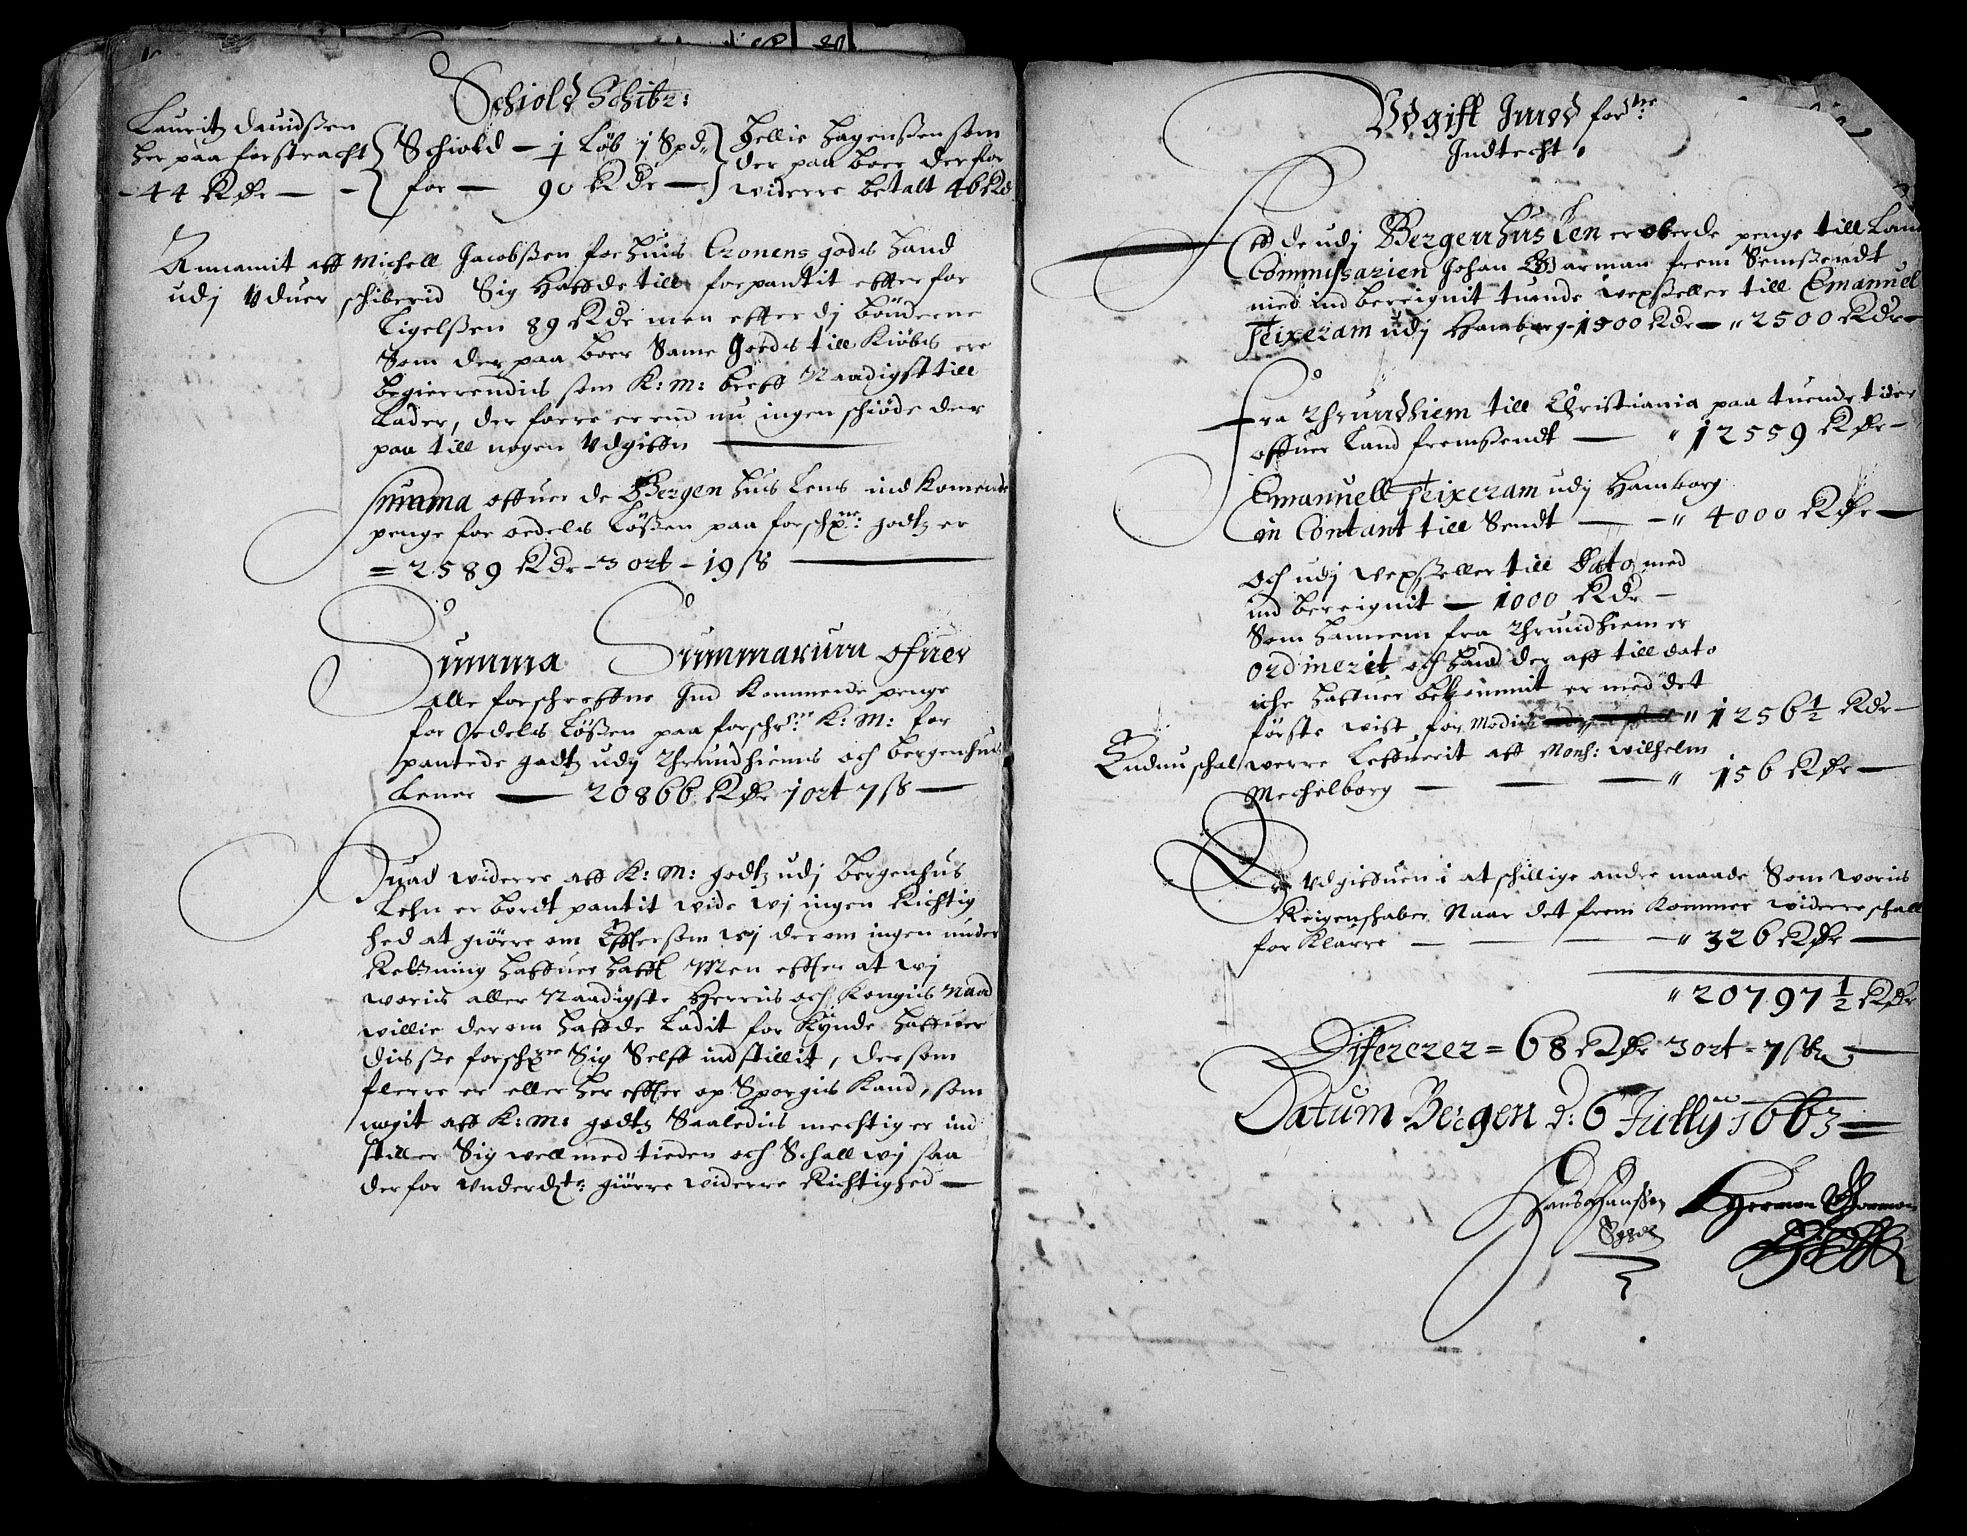 Schiold Schibr:
Lauritz Dauidsßen
her paa forstracht
- 44 Rdr -
Schiold - j Løb j Spd
for - 90 Rdr -
Hellie Hagensßen som
der paa boer der for
widerre betalt 46 Rd
Annamit aff Michell Jacobsßen for huis Cronens godis hand
udj Vduer schiberid Sig haffde till forpantit effter for
Ligelsßen 89 Rdr men effter dj bønderne
Som der paa boer Same Goedis till Kiøbs ere
begierrendis som K: M: breff Naadigst till
Lader, der forre er end nu ingen schiøde der
paa till nogen Vdgiffn
Summa offuer de Bergenhus Lens ind Komende
penge for oedelss Løßen paa forschr:ne godtz er
= 2589 Rdr - 3 ort - 19 ß
Summa Summarum ofuer
Alle forschreffne Ind Kommende penge
for Oedelss Løßen paa forschr:ne K: M: for
pantede godtz udj Thrundhiems och Bergenhuus
Lener - 20866 Rdr 1 ort 7 ß -
Huad widerre aff K: M: godtz udj Bergenhus
Lehn er bordt pantit wide wj ingen Richtig
hed at giørre om Effter som wj der om ingen under
Retning haffuer hafft Men effter at wj
woris aller Naadigste Herris och Kongis Naad
willie der om haffde Ladit for Kynde haffuer
disse forschr:ne Sig Selff indstillit, der som
flerre er eller her effter op Spørgis Kand, som
noget aff K: M: godtz Saaledis mechtig er ind
stiller Sig well med tieden och Schall wj saa
der for Vnderd:t giørre widerre Richtighed -
Vdgifft Imod for:ne
Indtecht.
Aff de udj Bergenhus Len er oberde penge till Land
Commissarien Johan Garman frem Sensßendt
med ind bereignit tuende wexseller till Emanuel
Teixeram udj Hamborg - 1500 Rdr - " 2500 Rdr -
Fra Thrundhiem till Christiania paa tuende tider
offuer Land fremsßendt - " 12559 Rdr -
Emanuell Teixeram udj Hamborg
in Contant till Sendt - - " 4000 Rdr -
Och udj wexseller till Dato med
ind bereignit - 1000 Rdr -
Som hannem fra Thrundhiem er
ordinerit och hand der aff till dato
iche haffuer bekommit er med det
første wist for Modis " 1256 1/2 Rdr -
Endnu schal werre Leffuerit aff Mons: Wilhelm
Mechelborg - - - " 156 Rdr -
Er Vdgiffuen i at schillige andre maade Som woris
Reigenschaber Naar det frem Kommer widerre schall
for Klarre - - - - " 326 Rdr -
" 20797 1/2 Rdr
Differerer = 68 Rdr 3 ort - 7 ß
Datum Bergen d: 6 Jullij 1663 =
Hans Hansßen
Herman Garman